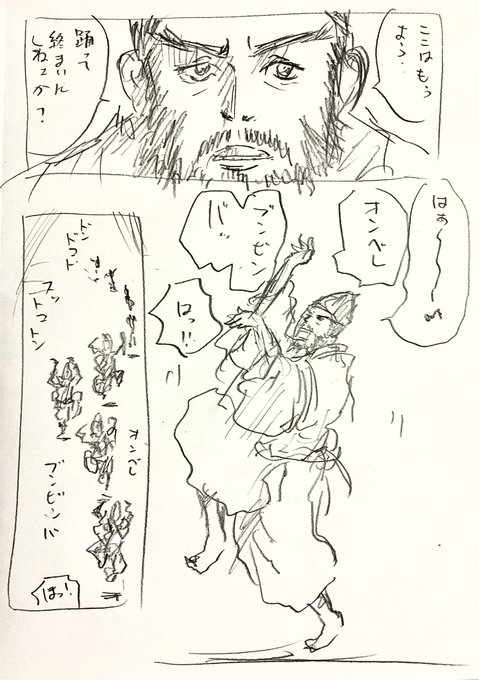 ここはもう
よう・
踊って
終まいに
しねェか?
はぁ〜〜〜〜
オンベレ
ブンビン
バッ
ロッ!!
ドン
ドコド
スットコトン
オンベレ
ブンビンバ
はっ!